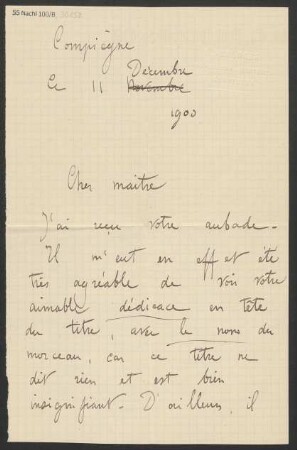 55 Nachl 100/B,
Compiègne
Décembre
le 11 Novembre
1900
Cher maitre
J'ai reçu votre aubade.
Il m'eut en effet été
très agréable de voir votre
aimable dédicace en tête
du titre, avec le nom du
morceau, car ce titre ne
dit rien et est bien
insignifiant. D'ailleurs, il